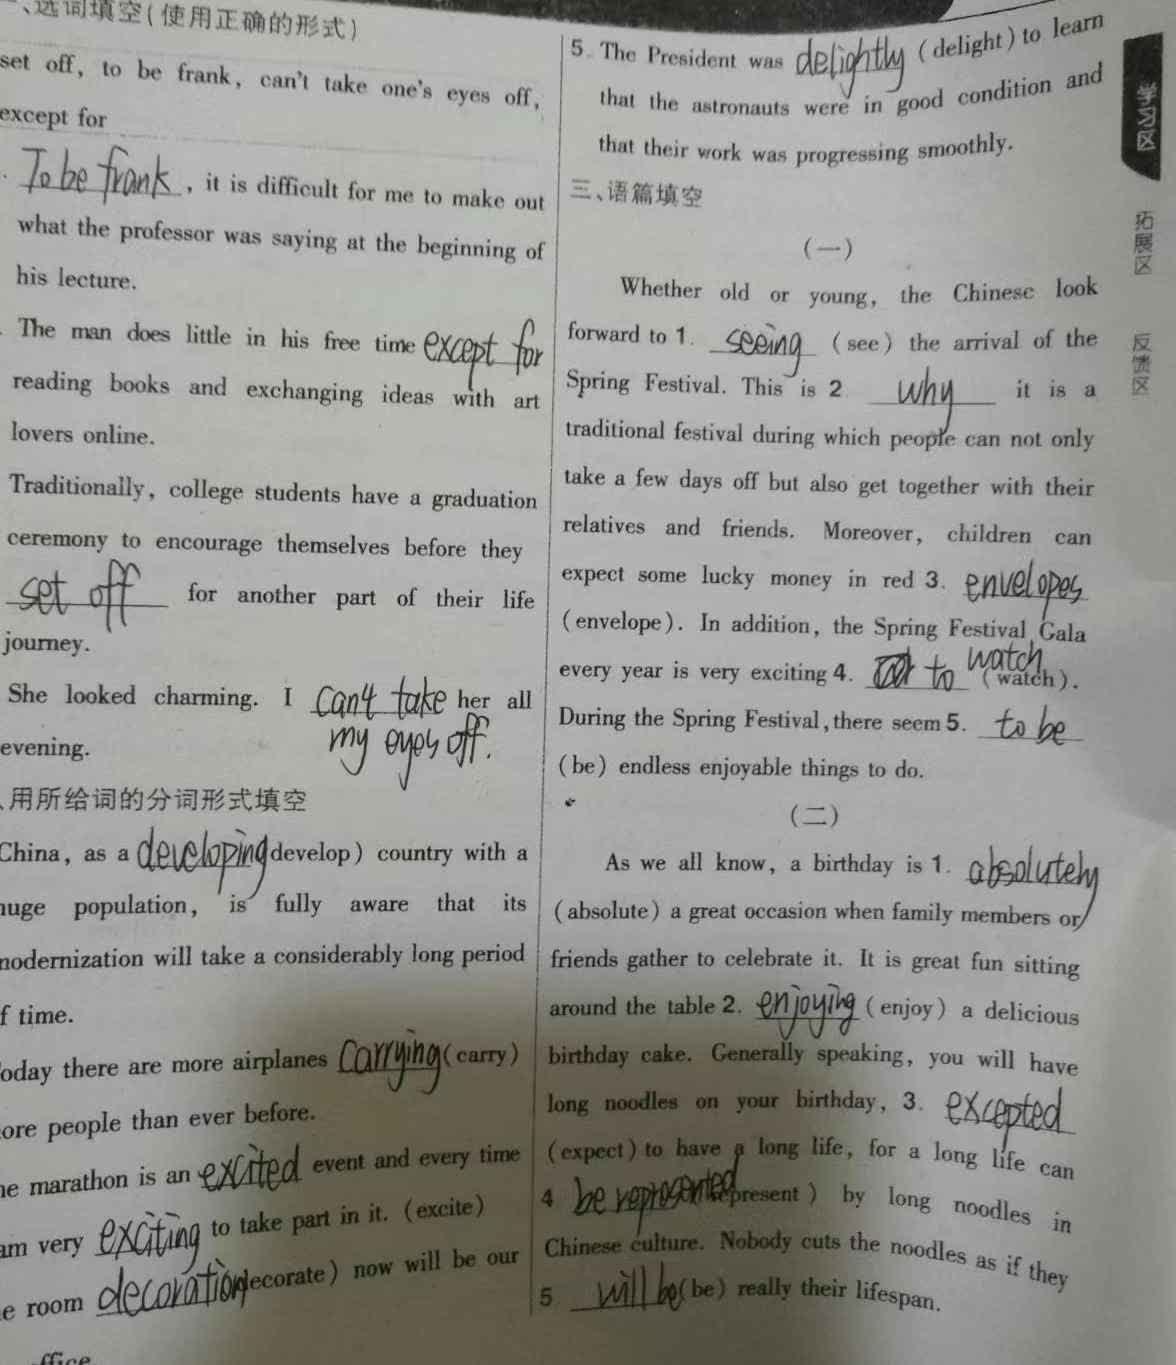 、选词填空(使用正确的形式)
set off, to be frank, can't take one's eyes off,
except for
To be frank, it is difficult for me to make out
what the professor was saying at the beginning of
his lecture.
The man does little in his free time except for
reading books and exchanging ideas with art
lovers online.
Traditionally, college students have a graduation
ceremony to encourage themselves before they
set off for another part of their life
journey.
She looked charming. I can't take her all
my eyes off.
evening.
、用所给词的分词形式填空
China, as a developing develop) country with a
huge population, is fully aware that its
modernization will take a considerably long period
f time.
oday there are more airplanes carrying (carry)
ore people than ever before.
he marathon is an excited event and every time
am very exciting to take part in it. (excite)
e room decoration decorate) now will be our
office
5. The President was delightly (delight) to learn
that the astronauts were in good condition and
that their work was progressing smoothly.
三、语篇填空
(一)
Whether old or young, the Chinese look
forward to 1. seeing (see) the arrival of the
Spring Festival. This is 2 why it is a
traditional festival during which people can not only
take a few days off but also get together with their
relatives and friends. Moreover, children can
expect some lucky money in red 3. envelopes
(envelope). In addition, the Spring Festival Gala
every year is very exciting 4. to watch (watch).
During the Spring Festival, there seem 5. to be
(be) endless enjoyable things to do.
(二)
As we all know, a birthday is 1. absolutely
(absolute) a great occasion when family members or
friends gather to celebrate it. It is great fun sitting
around the table 2. enjoying (enjoy) a delicious
birthday cake. Generally speaking, you will have
long noodles on your birthday, 3. excepted
(expect) to have a long life, for a long life can
4 be represented present) by long noodles in
Chinese culture. Nobody cuts the noodles as if they
5 will be (be) really their lifespan.
拓展区
反馈区